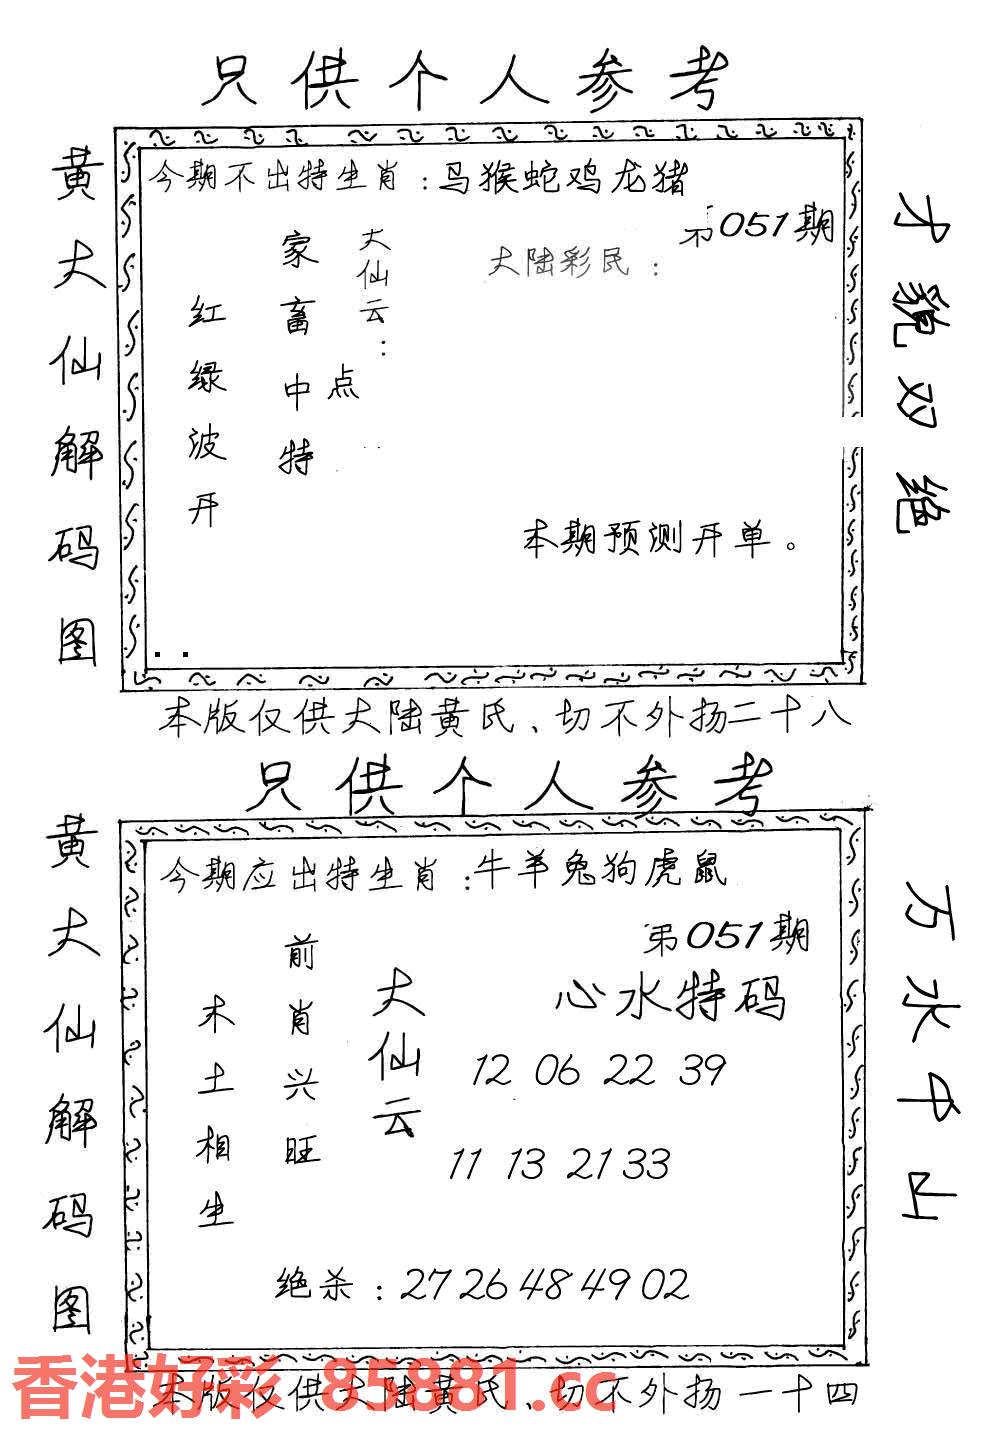 只供个人参考
黄大仙解码图
今期不出特生肖：马猴蛇鸡龙猪
051期
大陆彩民：
大仙云：
家畜中特
点
红绿波开
本期预测开单。
才貌双绝
本版仅供大陆黄氏、切不外扬二十八
只供个人参考
黄大仙解码图
今期应出特生肖：牛羊兔狗虎鼠
第051期
心水特码
大仙云
前肖兴旺
木土相生
12 06 22 39
11 13 21 33
绝杀：27 26 48 49 02
万水中山
本版仅供大陆黄氏、切不外扬一十四
香港好彩 85881.cc